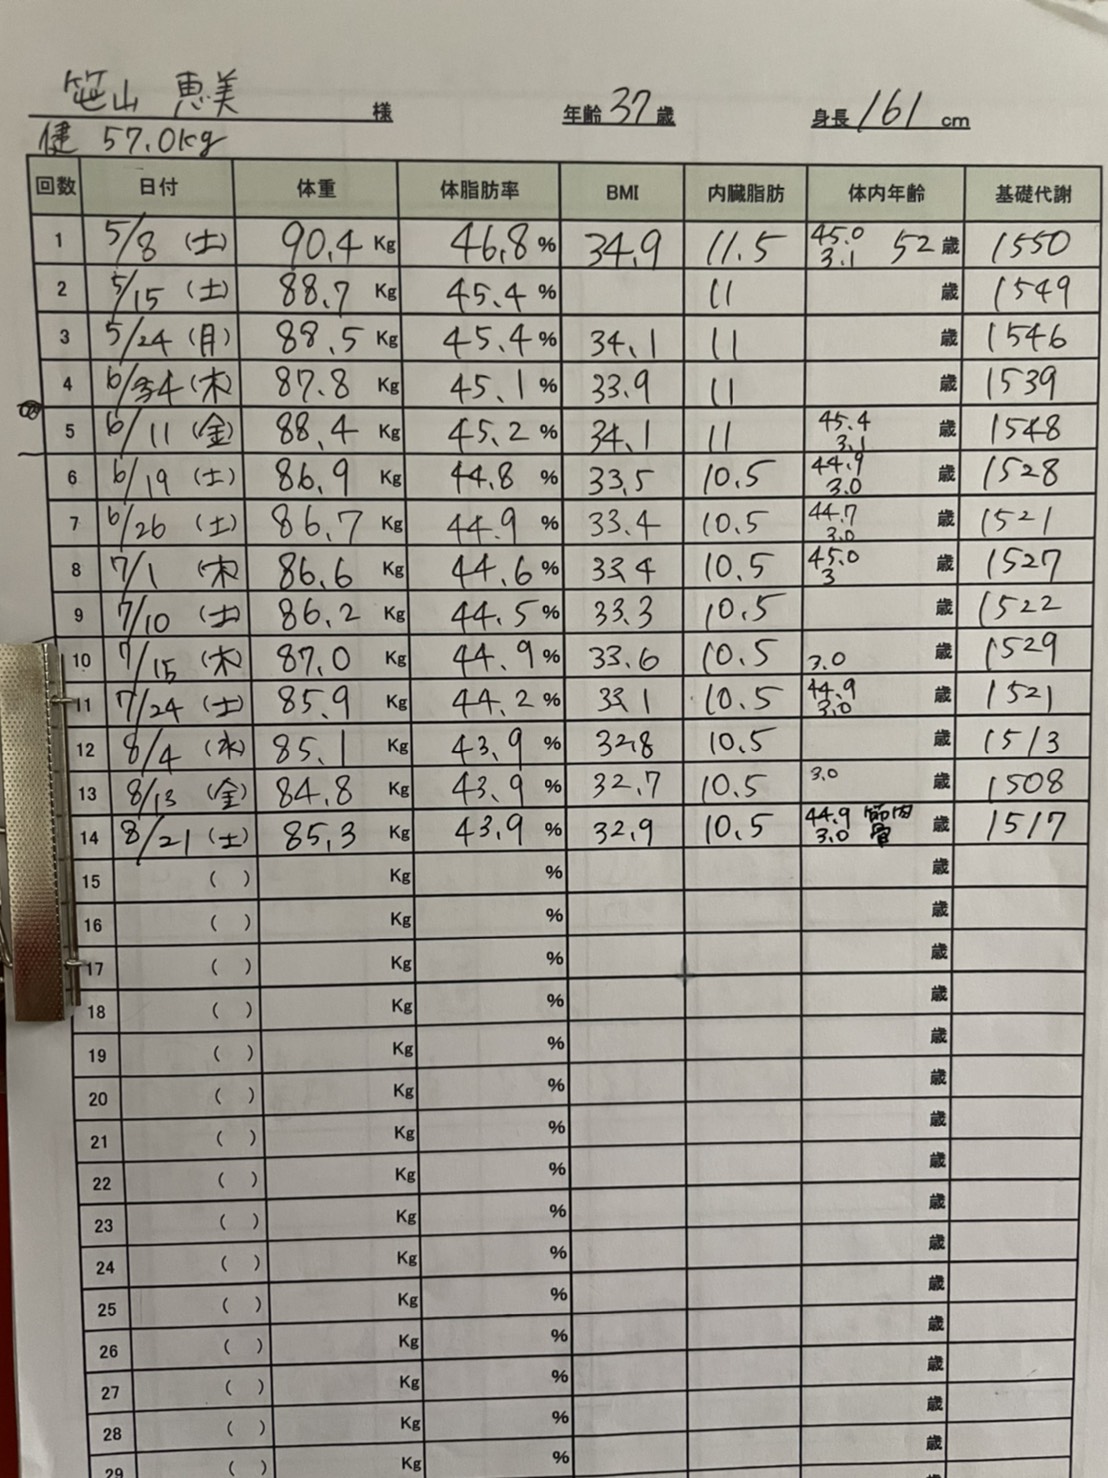 笹山 恵美 様 年齢 37 歳 身長 161 cm
健 57.0kg
回数 日付 体重 体脂肪率 BMI 内臓脂肪 体内年齢 基礎代謝
1 5/8 (土) 90.4 Kg 46.8 % 34.9 11.5 45.0 3.1 52 歳 1550
2 5/15 (土) 88.7 Kg 45.4 % 11 歳 1549
3 5/24 (月) 88.5 Kg 45.4 % 34.1 11 歳 1546
4 6/4 (木) 87.8 Kg 45.1 % 33.9 11 歳 1539
5 6/11 (金) 88.4 Kg 45.2 % 34.1 11 45.4 3.1 歳 1548
6 6/19 (土) 86.9 Kg 44.8 % 33.5 10.5 44.9 3.0 歳 1528
7 6/26 (土) 86.7 Kg 44.9 % 33.4 10.5 44.7 3.0 歳 1521
8 7/1 (木) 86.6 Kg 44.6 % 33.4 10.5 45.0 3 歳 1527
9 7/10 (土) 86.2 Kg 44.5 % 33.3 10.5 歳 1522
10 7/15 (木) 87.0 Kg 44.9 % 33.6 10.5 3.0 歳 1529
11 7/24 (土) 85.9 Kg 44.2 % 33.1 10.5 44.9 3.0 歳 1521
12 8/4 (水) 85.1 Kg 43.9 % 32.8 10.5 歳 1513
13 8/13 (金) 84.8 Kg 43.9 % 32.7 10.5 3.0 歳 1508
14 8/21 (土) 85.3 Kg 43.9 % 32.9 10.5 44.9 筋肉 3.0 骨 歳 1517
15 ( ) Kg % 歳
16 ( ) Kg % 歳
17 ( ) Kg % 歳
18 ( ) Kg % 歳
19 ( ) Kg % 歳
20 ( ) Kg % 歳
21 ( ) Kg % 歳
22 ( ) Kg % 歳
23 ( ) Kg % 歳
24 ( ) Kg % 歳
25 ( ) Kg % 歳
26 ( ) Kg % 歳
27 ( ) Kg % 歳
28 ( ) Kg % 歳
29 ( ) Kg % 歳